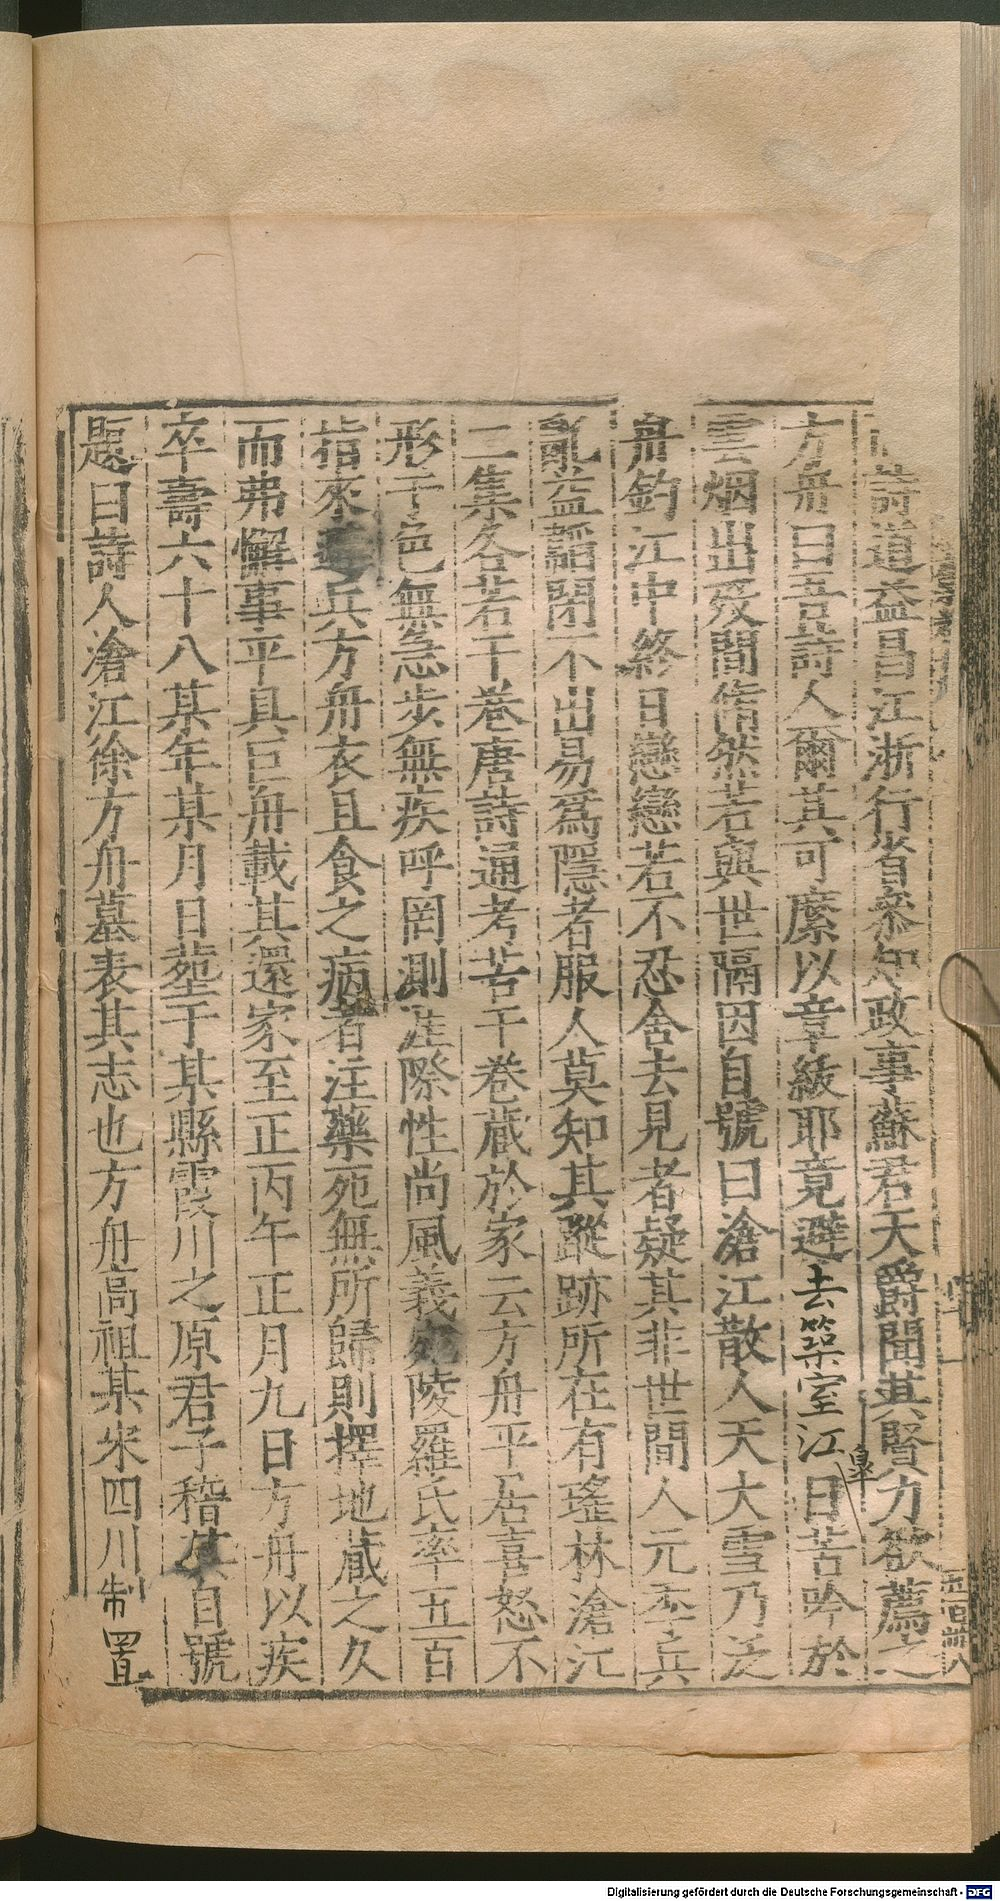 詩道益昌江浙行省叅知政事蘇君天爵聞其賢力欲薦之
方舟曰吾詩人爾其可縻以章紱耶竟避去築室江皐日苦吟於
雲烟出没間翛然若與世隔因自號曰滄江散人天大雪乃泛
舟釣江中終日戀戀若不忍舍去見者疑其非世間人元季兵
亂益韜閉不出易爲隱者服人莫知其蹤跡所在有瑤林滄江
二集各若干卷唐詩通考若干卷藏於家云方舟平居喜怒不
形于色無急步無疾呼罔測涯際性尚風義宛陵羅氏率五百
指來兵方舟衣且食之病者注藥死無所歸則擇地蕆之久
而弗懈事平具巨舟載其還家至正丙午正月九日方舟以疾
卒壽六十八某年某月日塟于某縣霞川之原君子稽其自號
題曰詩人滄江徐方舟墓表其志也方舟高祖某宋四川制置
五百卌八
Digitalisierung gefördert durch die Deutsche Forschungsgemeinschaft - DFG